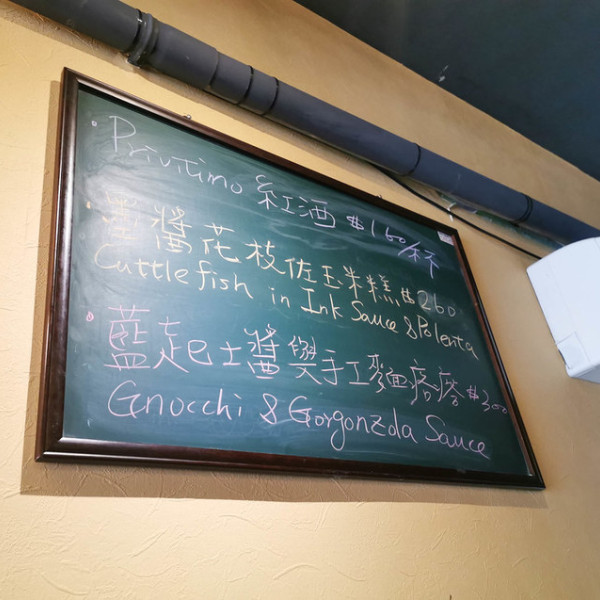 • Privitimo 紅酒 $160/杯
• 墨醬花枝佐玉米糕 $260
Cuttlefish in Ink Sauce & Polenta
• 藍起士醬與手工麵疙瘩 $300
Gnocchi & Gorgonzola Sauce